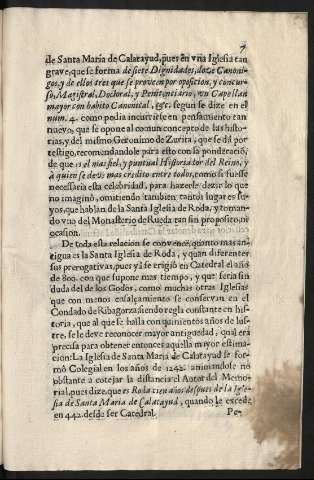 7
de Santa Maria de Calatayud, pues en vna Iglesia tan
grave, que se forma de siete Dignidades, doze Canoni-
gos, y de ellos tres que se proveen por oposicion, y concur-
so, Magistral, Doctoral, y Penitenciario, vn Capellan
mayor con habito Canonical, &c; segun se dize en el
num. 4. como podia incurrirse en pensamiento tan
nuevo, que se opone al comun concepto de las histo-
rias, y del mismo Geronimo de Zurita, que se dà por
testigo, recomendandole para esto con la ponderaciõ,
de que es el mas fiel, y puntual Historiador del Reino, y
à quien se deve mas credito entre todos, como si fuesse
necessaria esta celebridad, para hazerle dezir lo que
no imaginò, omitiendo tambien tantos lugares su-
yos, que hablan de la Santa Iglesia de Roda, y toman-
do vno del Monasterio de Rueda tan sin proposito, ni
ocasion.
De toda esta relacion se convence, quanto mas an-
tigua es la Santa Iglesia de Roda, y quan diferentes
sus prerrogativas, pues yà se erigiò en Catedral el año
de 800. con que supone mas tiempo, y que seria sin
duda del de los Godos, como muchas otras Iglesias
que con menos ensalçamiento se conservan en el
Condado de Ribagorza siendo regla constante en his-
toria, que al que se halla con quinientos años de lus-
tre, se le deve reconocer mayor antiguedad, qual era
precisa para obtener entonces aquella mayor estima-
cion: La Iglesia de Santa Maria de Calatayud se for-
mò Colegial en los años de 1242. animandole no
obstante a cotejar la distancia el Autor del Memo-
rial, pues dize, que es Roda cien años despues de la Igle-
sia de Santa Maria de Calatayud, quando le excede
en 442. desde ser Catedral.
Pe-